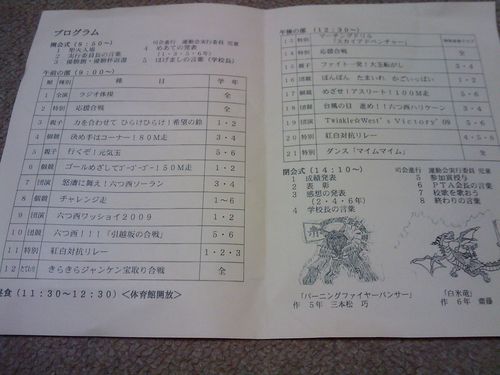 プログラム
開会式(8:50~)
司会進行 運動会実行委員 児童
1 聖火入場
2 実行委員長の言葉
3 優勝旗・優勝杯返還
4 めあての発表
(1・3・5・6年)
5 はげましの言葉(学校長)
午前の部(9:00~)
順 種別 種目 学年
1 全演 ラジオ体操 全
2 特別 応援合戦 全
3 親子 力を合わせて ひらけひらけ!希望の鈴 1・2
4 個競 決め手はコーナー!80M走 3・4
5 親子 行くぞ!元気玉 5・6
6 個競 ゴールめざしてゴーゴーゴー!50M走 1・2
7 団演 怒濤に舞え!六つ西ソーラン 3・4
8 個競 チャレンジ走 1~6
9 団演 六つ西ワッショイ2009 1・2
10 団競 六つ西!!!「引越坂の合戦」 5・6
11 特別 紅白対抗リレー 1・2・3
12 きらきらジャンケン宝取り合戦 全
昼食(11:30~12:30)<体育館開放>
午後の部(12:30~)
13 特別 マーチングドリル
「スカイアドベンチャー」
14 特別 応援合戦 全
15 親子 ファイト一発!大玉転がし 3・4
16 団競 ぽんぽん たまいれ むごいっぱい 1・2
17 個競 めざせ!アスリート!100M走 5・6
18 団競 台風の目 進め!!六つ西ハリケーン 3・4
19 団演 Twinkle☆West's Victory'09 5・6
20 特別 紅白対抗リレー 4・5・6
21 特別 ダンス「マイムマイム」 全
閉会式(14:10~)
司会進行 運動会実行委員 児童
1 成績発表
2 表彰
3 感想の発表
(2・4・6年)
4 学校長の言葉
5 参加賞授与
6 PTA会長の言葉
7 校歌を歌おう
8 終わりの言葉
「バーニングファイヤーパンサー」
作 5年 三本松 巧
「白米竜」
作 6年 齋藤